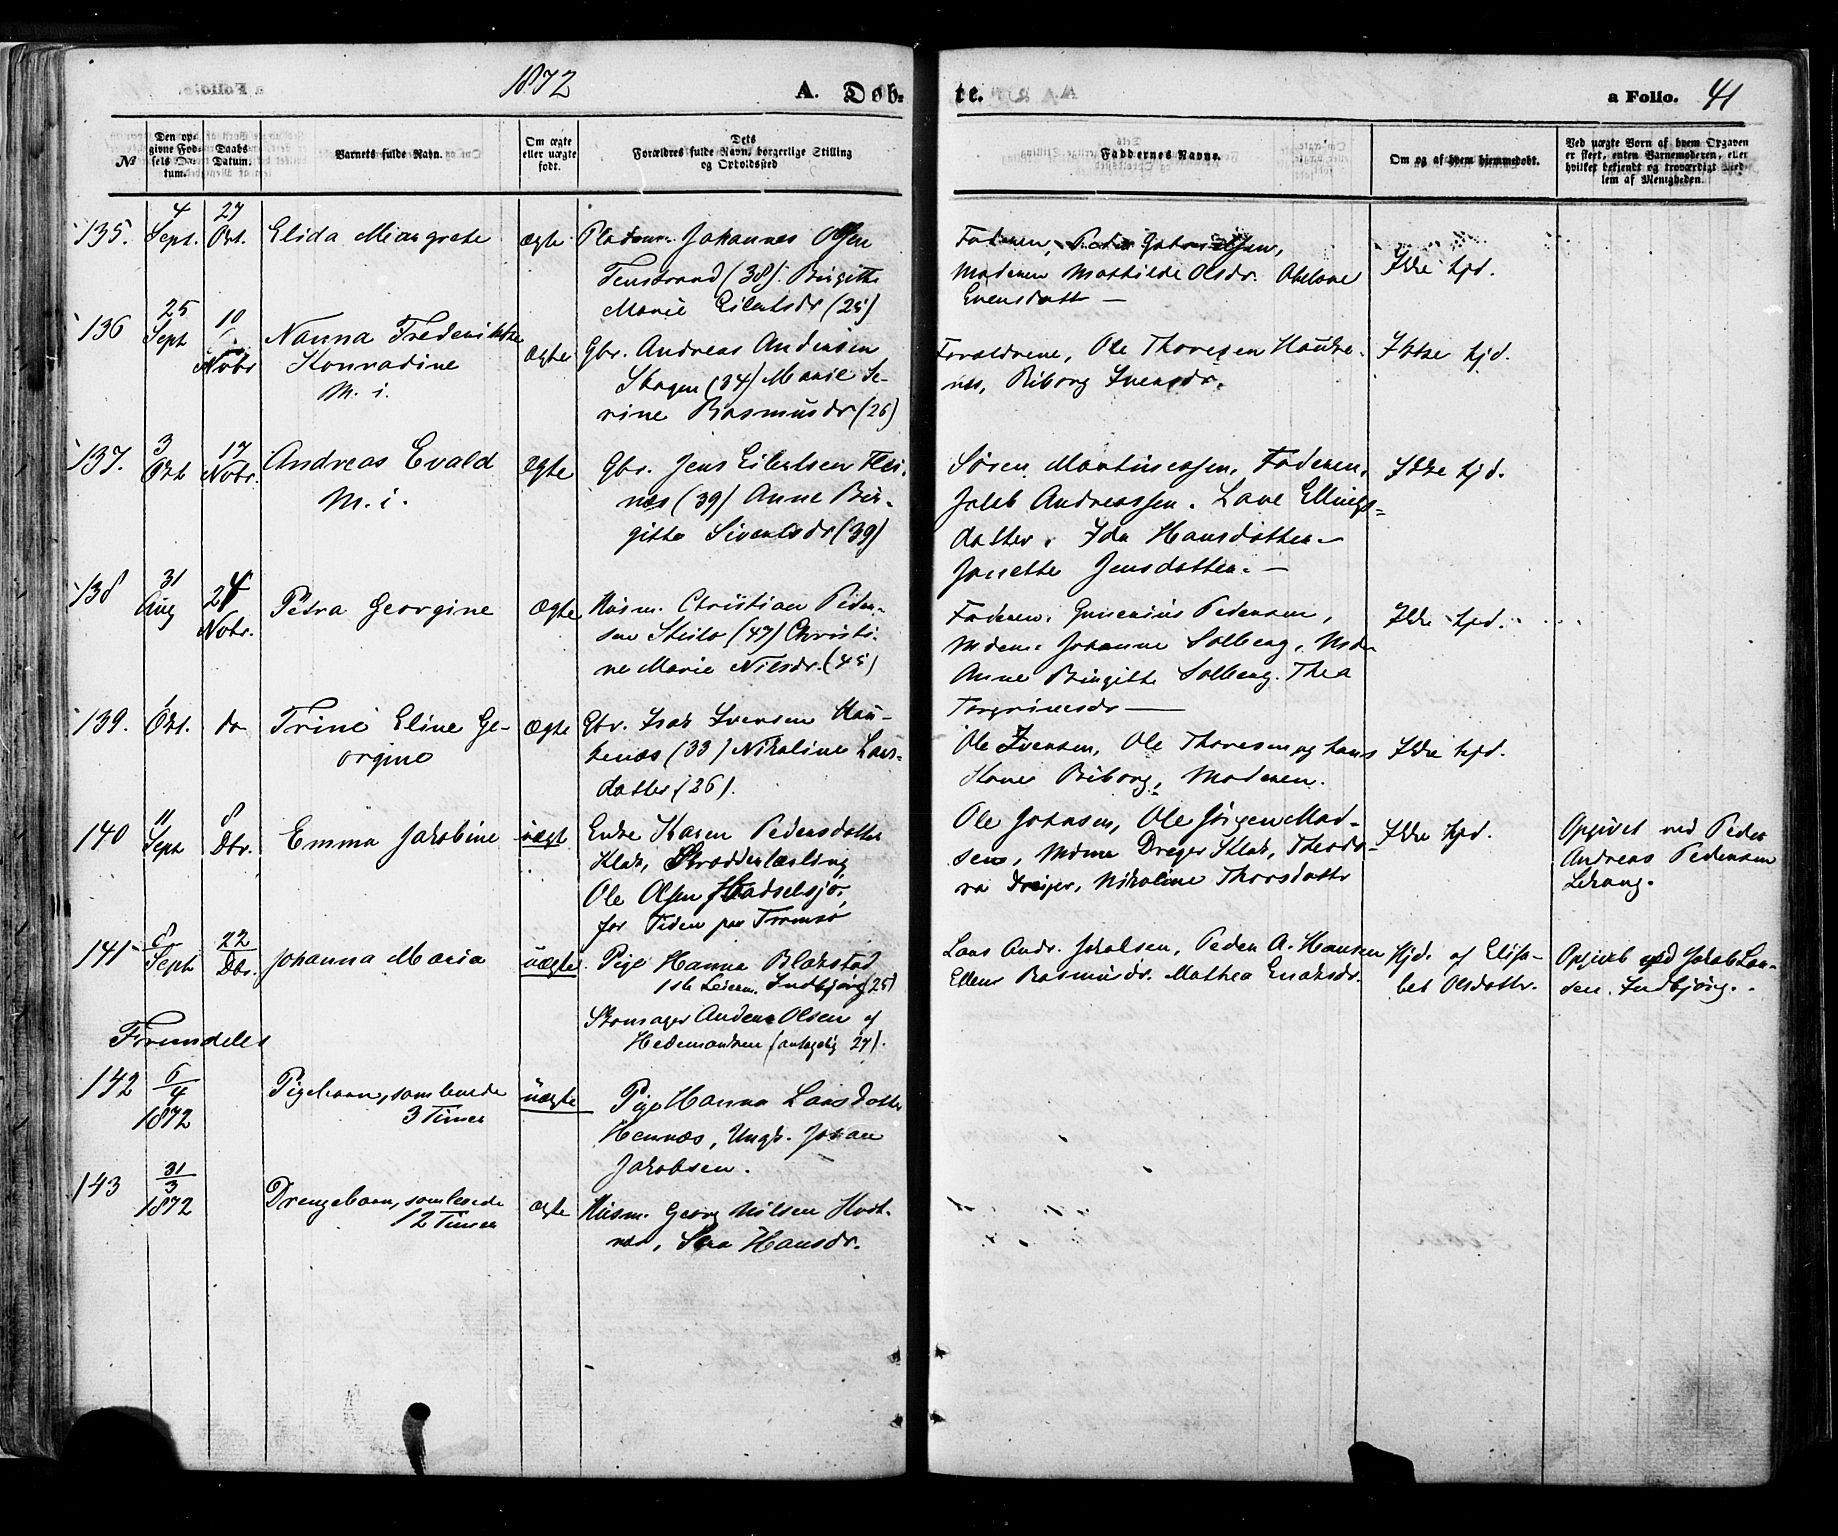 1872 A. Døb-
te. a Folio. 41
№
Den op-
givne Fød-
sels Da-
tum.
Daabs
Datum.
Barnets fulde Navn.
Om ægte
eller uægte
født.
Dets
Forældres fulde Navn, borgerlige Stilling
og Opholdssted
Faddernes Navne.
Om og af hvem hjemmedøbt.
Ved uægte Børn af hvem Opgaven
er skeet, enten Barnemoderen, eller
hvilket bekjendt og troværdigt Med-
lem af Menigheden.
135. 4 Sept. 27 Oct. Elida Margrete ægte Johannes Olsen
(38). Birgitte
Marie Eilertsdr (25)
Faderen, Peder
Moderen Mathilde Olsdr.
Evensdatt —
Ikke hjd.
136 25 Sept 10 Nobr Nanna Frederikke
Konradine
M. i.
ægte Gbr. Andreas Andersen
Skagen (34) Marie Se-
rine Rasmusdr (26)
Forældrene, Ole Thoresen Hauke-
nes, Riborg Ivensdr.
Ikke hjd.
137. 3 Okt 17 Nobr. Andreas Evald
M. i.
ægte Gbr. Jens Eilertsen Fles-
næs (39) Anne Bir-
gitte Sivertsdr (39)
Søren Martinussen, Faderen,
Jakob Andreassen. Lave Ellings-
datter. Ida Hansdatter
Janette Jensdatter. —
Ikke hjd.
138 31 Aug 24 Nobr. Petra Georgine ægte Husm. Christian Peder-
sen Steilo (47) Christi-
ne Marie Nilsdr. (45)
Faderen. Pedersen,
Johanne Solberg,
Anne Birgitte Solberg. Thea
Torgrimsdr —
Ikke hjd.
139. Okt. do Trine Eline Ge-
orgine
ægte Gbr. Isak Ivensen Hau-
kenæs (33) Nikoline Lars-
datter (26).
Ole Ivensen, Ole Thoresen og hans
Kone Riborg, Moderen.
Ikke hjd.
140 11 Sept 8 Dbr. Emma Jakobine uægt Enke Karen Pedersdatter
Klak, Skrædderlærling
Ole Olsen Hadselsjør,
for Tiden paa Tromsø
Ole Johnsen, Ole Jørgen Mad-
sen, Dreyer Klak, Theodo-
ra Dreyer, Nikoline Thorsdattr
Ikke hjd.
Opgivet ved Peder
Andreas Pedersen
Lekang.
141 8 Sept 22 Dbr. Johanna Maria uægte. Pige Hanna Blokstad
1ste Leierm. Indbjørg (25)
Skomager Anders Olsen af
Hedemarken (antagelig 27).
Lars Andr. Jakobsen, Peder A. Hansen
Ellen Rasmusdr. Mathea Eriksdr.
Hjd. af Elisa-
bet Olsdattr.
Opgivet ved Jakob Lar-
sen. Indbjørg.
Fremdeles
142 6/4 1872 Pigebarn, som levede
3 Timer
uægte Pige Hanna Larsdatter
Hennæs, Ungk. Johan
Jakobsen.
143 31/3 1872 Drengebarn, som levede
12 Timer
ægte Husm. Georg Nilsen
Sara Hansdr.